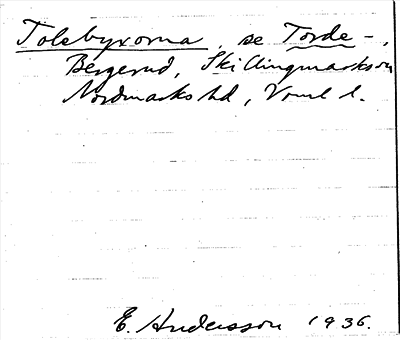 Tolsbyxorna, se Torde-,
Bergerud, Skillingmarks sn
Nordmarks hd, Vrml l.
E. Andersson 1936.